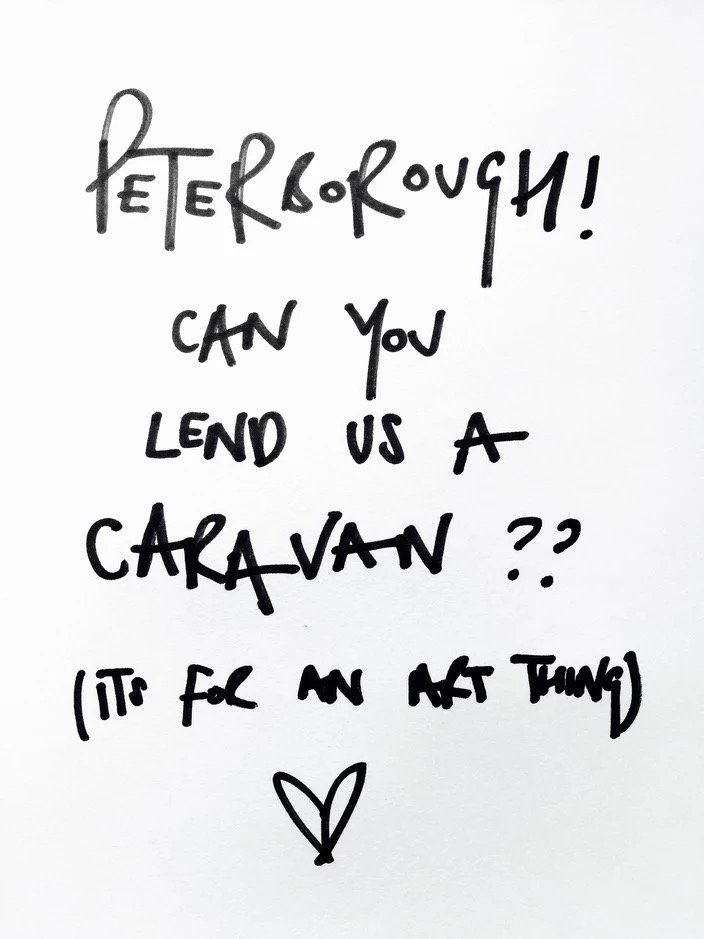 PETERBOROUGH!
CAN YOU
LEND US A
CARAVAN ??
(ITS FOR AN ART THING)